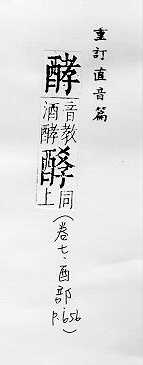 重訂直音篇
酵
音教
酒酵
同
上
(卷七·酉部 p.656)